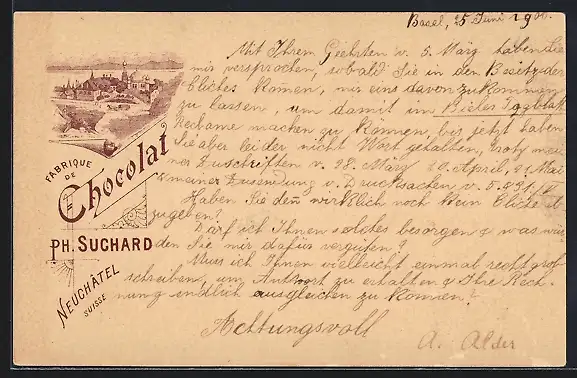 Basel, 25 Juni 1900.
Mit Ihrem Geehrten v. 5. März haben Sie
mir versprochen, sobald Sie in den Besitz der
Cliches komen, mir eins davon zukommen
zu lassen, um damit im Bieler Tagblatt
Reclame machen zu können, bis jetzt haben
Sie aber leider nicht Wort gehalten, trotz mei-
ner Zuschriften v. 28. März 10. April, 21 Mai
& meiner Zusendung v. Drucksachen v.
Haben Sie den wirklich noch kein Cliche ab
zugeben?
Darf ich Ihnen solches besorgen & was wür-
den Sie mir dafür vergüten?
Muss ich Ihnen vielleicht einmal recht grob
schreiben, um Antwort zu erhalten & Ihre Rech-
nung endlich ausgleichen zu können?
Achtungsvoll
A. Alder
FABRIQUE
DE
Chocolat
PH. SUCHARD
NEUCHÂTEL
SUISSE